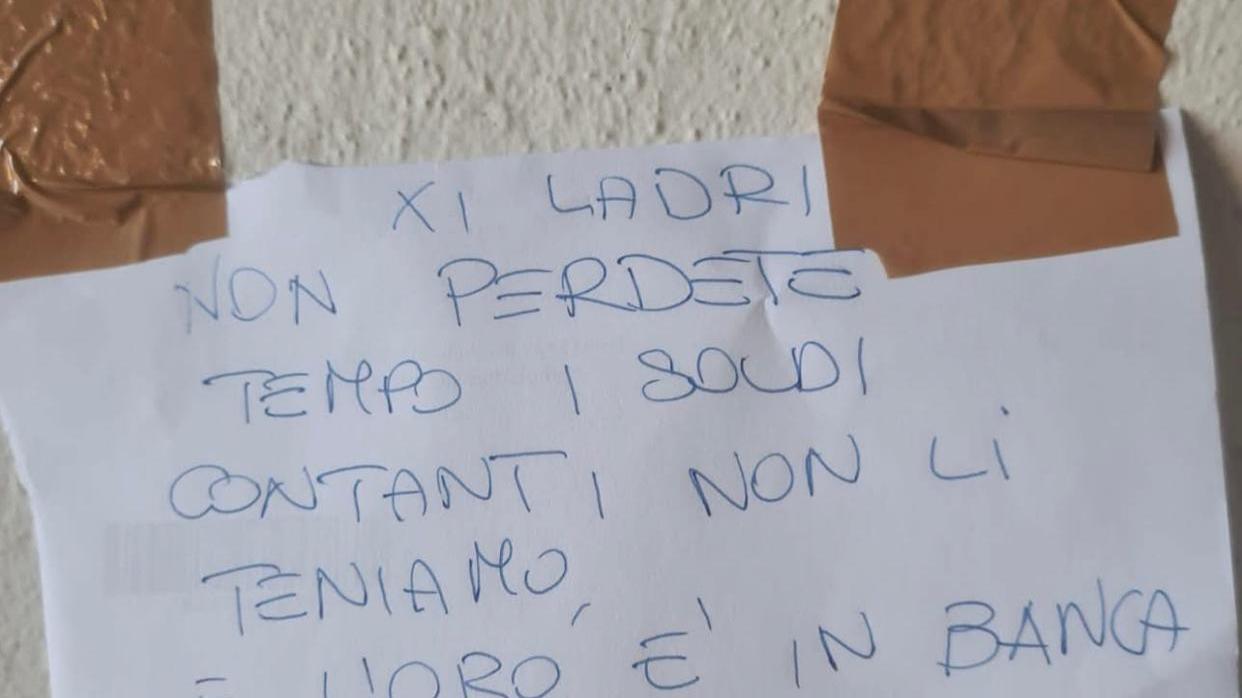 XI LADRI
NON PERDETE
TEMPO I SOLDI
CONTANTI NON Li
TENIAMO,
E L'ORO E' IN BANCA